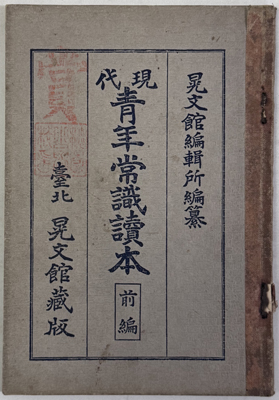 晃文館編輯所編纂
現代
青年常識讀本
前編
臺北 晃文館藏版